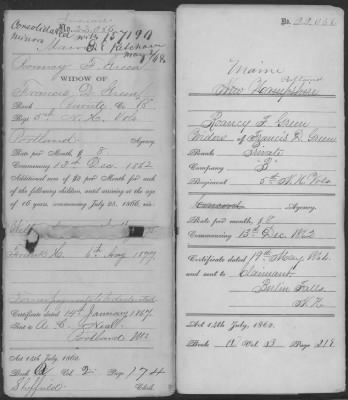 Consolidated with 157190
Minors
No. 22,056
May 2/68
WIDOW OF
Francis D. Green
Rank Private Co. B
Reg 5th N.H. Vols
Portland Agency.
Rate per Month, $ 8.
Commencing 13th Dec. 1862
Additional sum of $2 per Month for each
of the following children, until arriving at the age
of 16 years, commencing July 25, 1866, viz:
H. 6th Aug 1877.
Certificate dated 14th January 1867.
Sent to A.
Portland Me
Act 14th July, 1862.
Book A Vol. 2 Page 174
Sheffield Clerk.
No. 22,056
Maine
Portland
New Hampshire
Roancy F. Green
Widow of Francis D. Green
Rank Private
Company "B"
Regiment 5th N.H. Vols
Concord Agency.
Rate per month, $8
Commencing 13th Dec. 1862
Certificate dated 19th May 1864.
and sent to Claimant
Berlin Falls
N.H.
Act 14th July, 1862.
Book A Vol. 3 Page 218